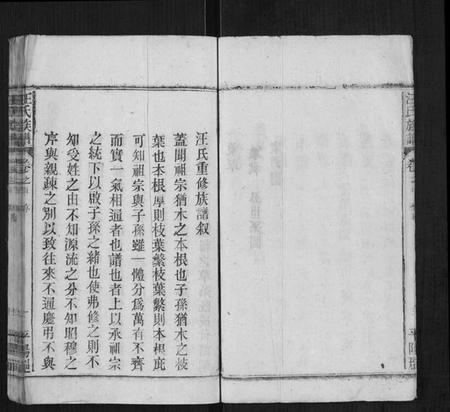 汪氏重修族譜叙
蓋聞祖宗猶木之本根也子孫猶木之枝
葉也本根厚則枝葉繁枝葉繁則本根庇
可知祖宗與子孫雖一體分爲萬有不齊
而實一氣相通者也譜也者上以承祖宗
之統下以啟子孫之緒也使弗修之則不
知受姓之由不知源流之分不知昭穆之
序與親疎之別以致往來不通慶弔不與
汪氏族譜
卷之
平陽
汪氏族譜
卷
平陽